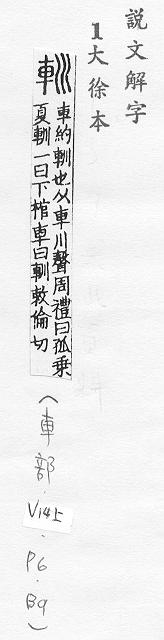 說文解字
1大徐本
車約軜也从車川聲周禮曰孤乗
夏軜一曰下棺車曰軜敕倫切
(車部.V14上.P6.B9)